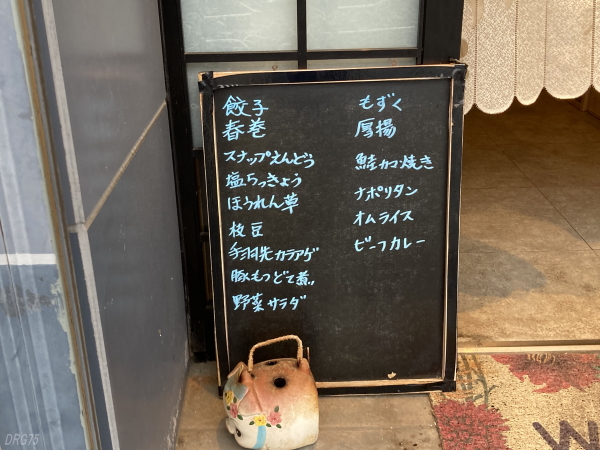 餃子
春巻
スナップえんどう
塩らっきょう
ほうれん草
枝豆
手羽先カラアゲ
豚もつどて煮
野菜サラダ
もずく
厚揚
鮭カマ焼き
ナポリタン
オムライス
ビーフカレー
W
DRG75